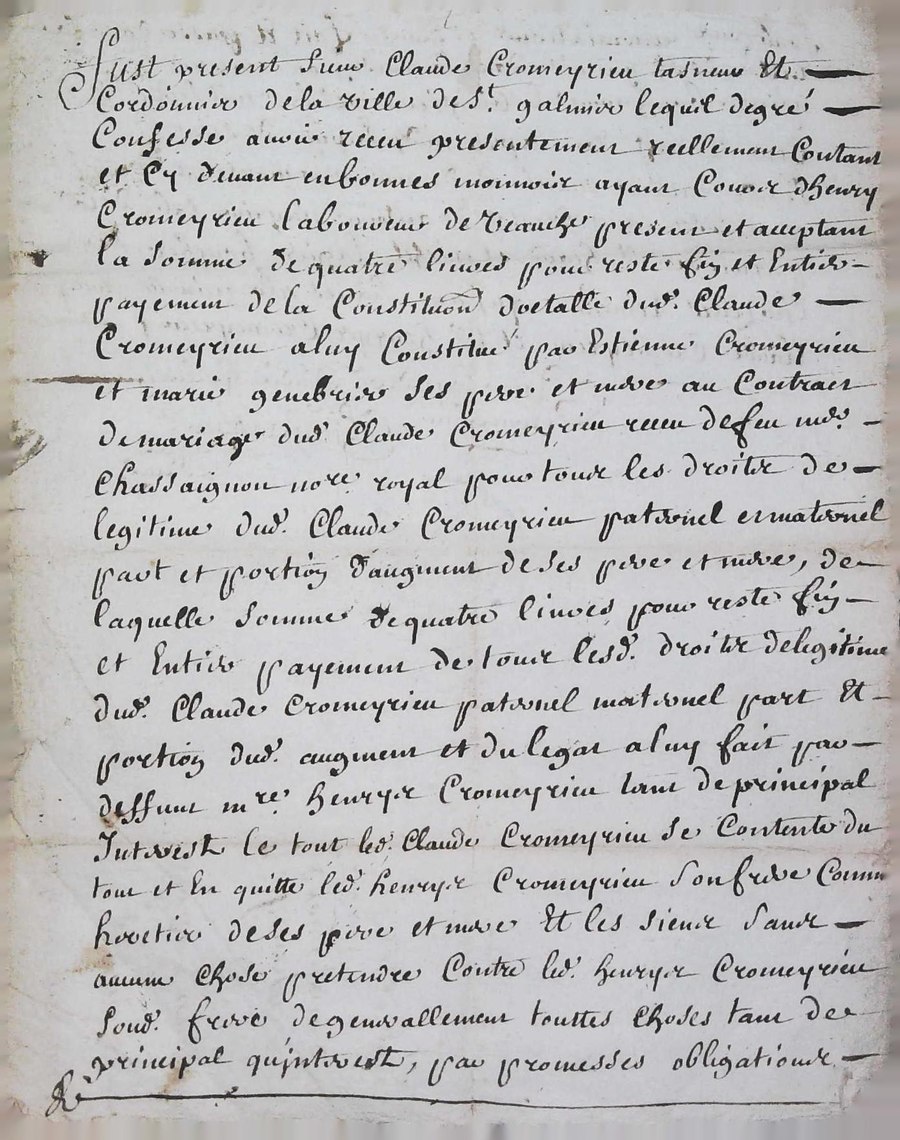 Fust present Sieur Claude Cromeyrieu tasneur Et
Cordonnier de la ville de St. galmier lequel degré
Confesse avoir receu presentement reellement Contant
et Cy devant en bonnes monnoies ayant Cours d'henry
Cromeyrieu laboureur de present et acceptant
la Somme de quatre livres pour reste fin et Entier
payement de la Constitution doctalle dud. Claude
Cromeyrieu a luy Constitué par Estienne Cromeyrieu
et marie genebrier Ses pere et mere au Contract
de mariage dud. Claude Cromeyrieu receu de feu mre.
Chassaignon nore. royal pour tous les droits de
legitime dud. Claude Cromeyrieu paternel et maternel
part et portion d'augment de Ses pere et mere, de
laquelle Somme de quatre livres pour reste fin
et Entier payement de tous lesd. droits de legitime
dud. Claude Cromeyrieu paternel maternel part Et
portion dud. augment et du legat a luy fait par
deffunt mre. henrys Cromeyrieu tant de principal
Interest le tout led. Claude Cromeyrieu Se Contente du
tout et En quitte led. henrys Cromeyrieu Son frere Comme
heretier de Ses pere et mere Et les Siens Sans
aucune Chose pretendre Contre led. henrys Cromeyrieu
Sond. frere de generallement touttes Choses tant de
principal qu'interest, par promesses obligations